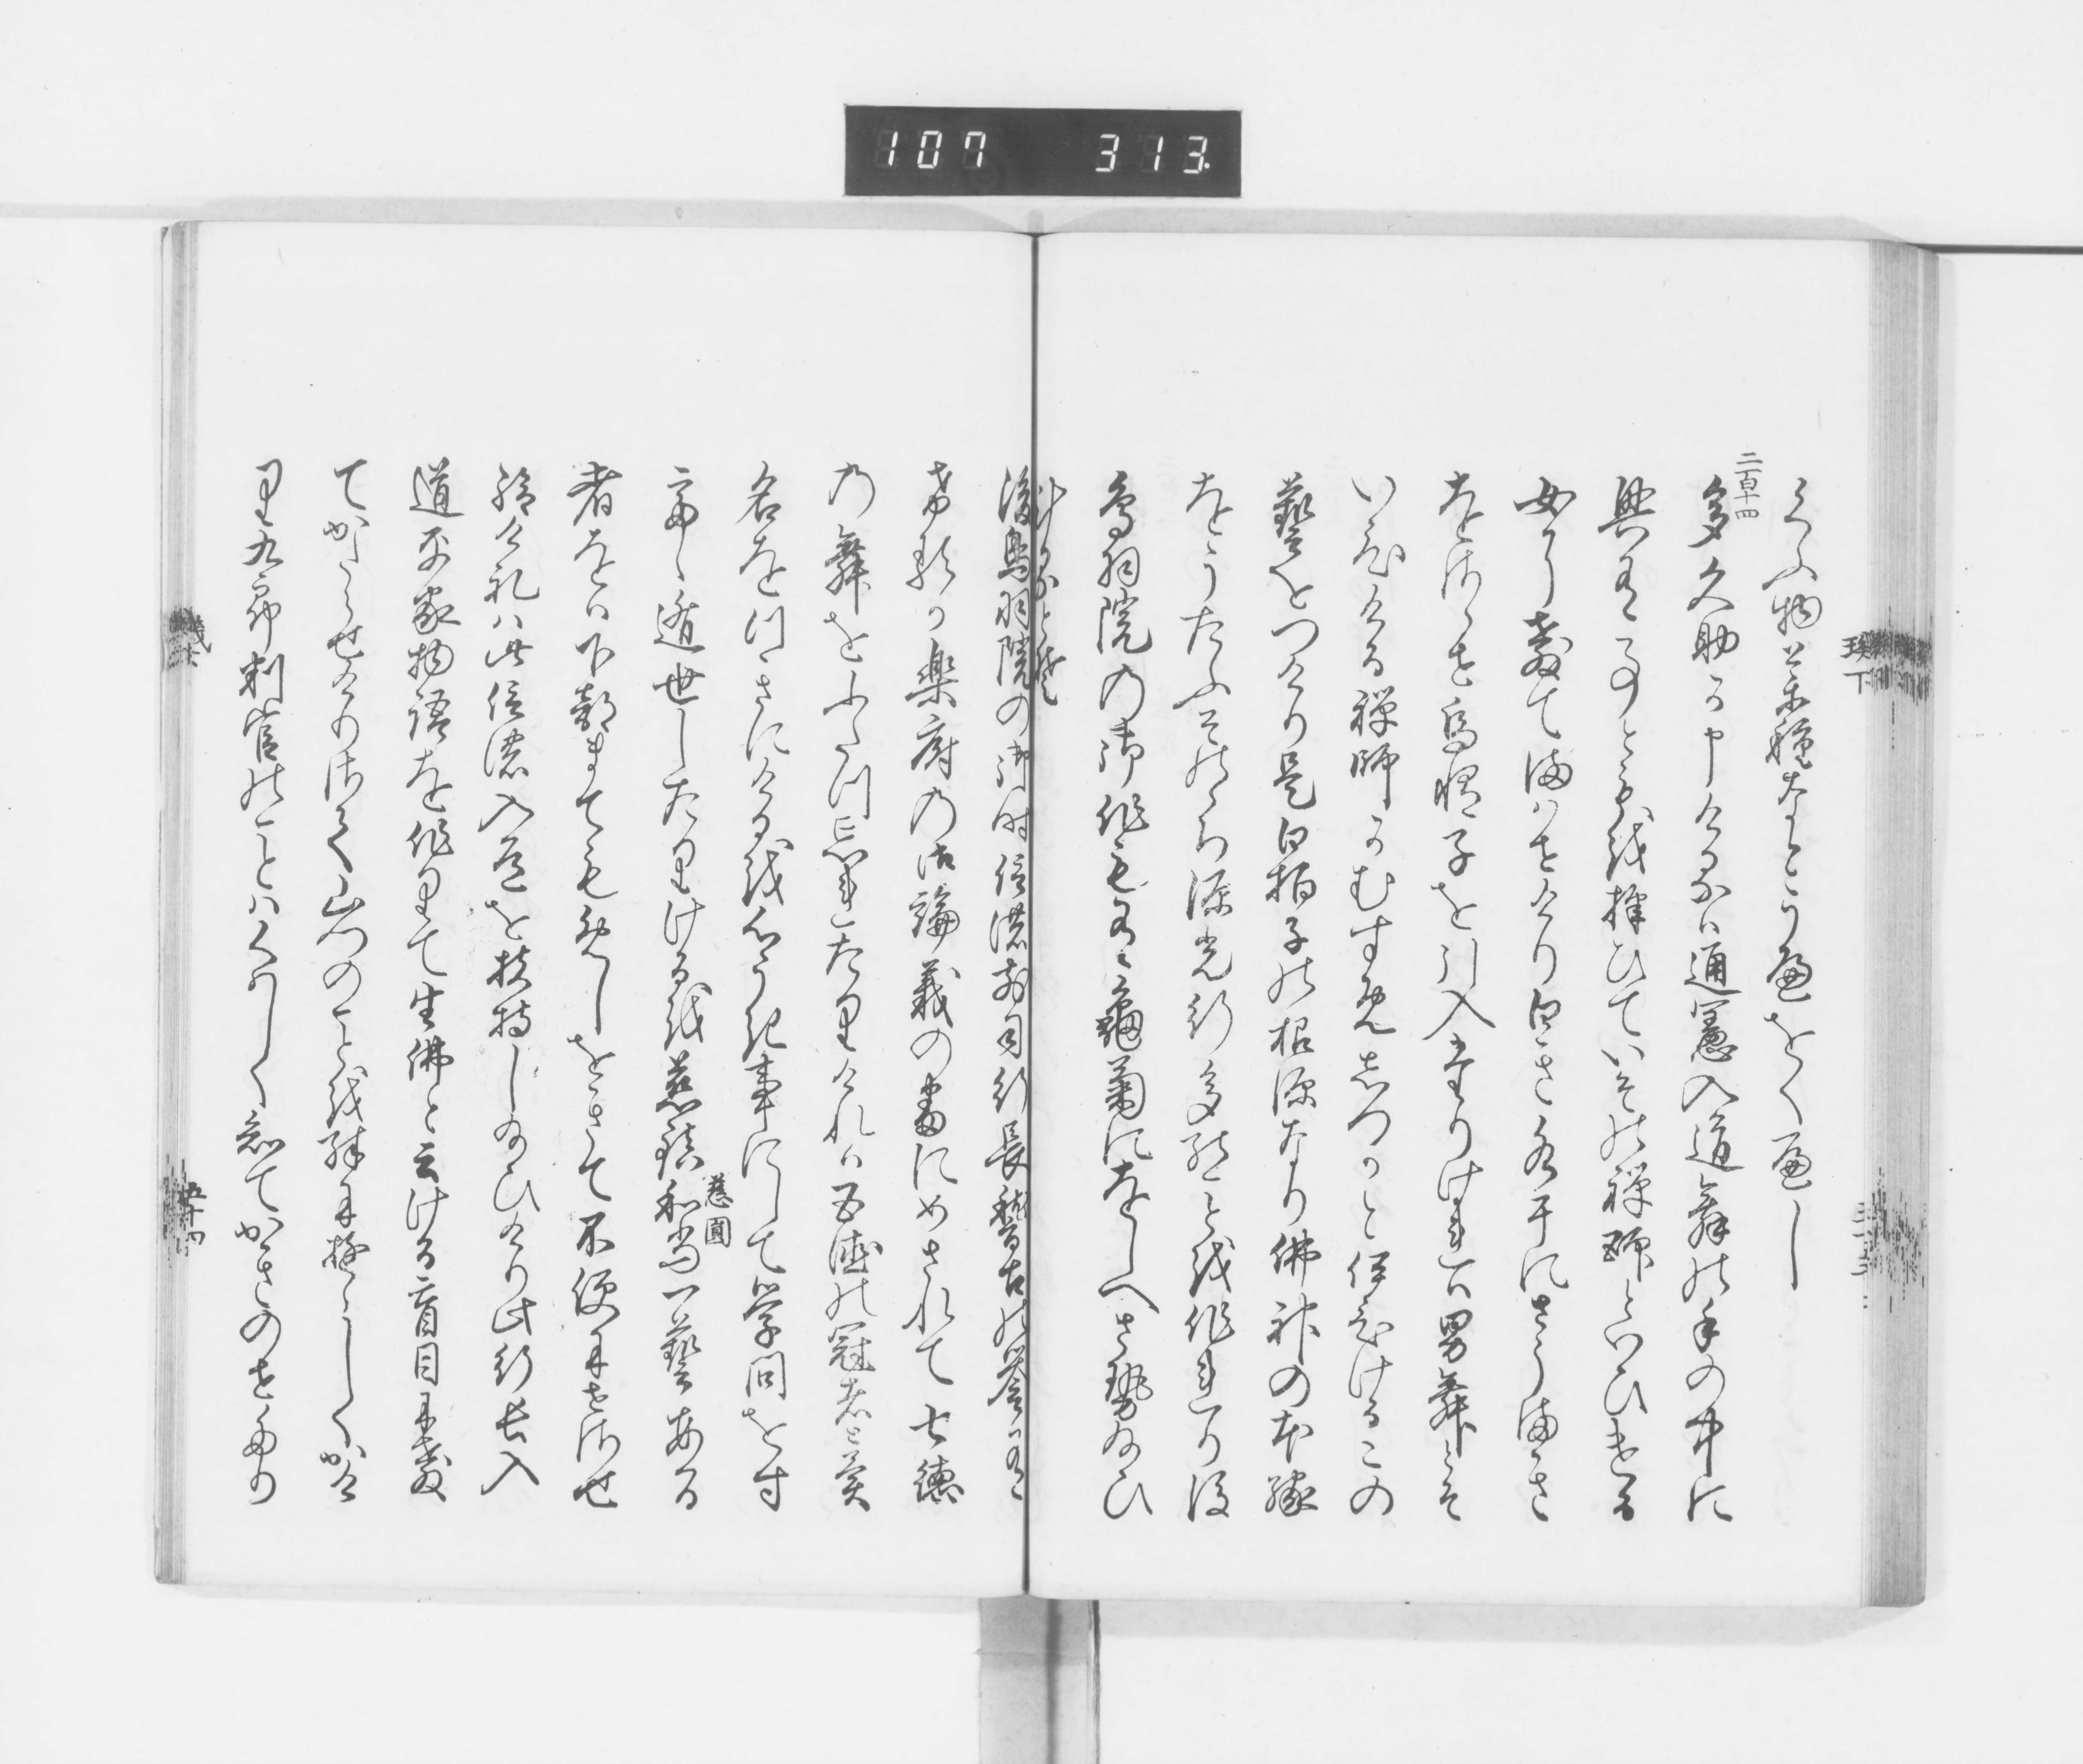 107 313.
くふ物は薬種なとうゑをくへし
二百十四
多久助か申けるは通憲入道舞の手の中に
興有ことともを撰ひていその禅師といひける
女にをしへてまはせけり白き水干にさうまき
をさゝせ烏帽子を引入たりけれは男舞とそ
いひける禅師かむすめしつかと伊ひけるこの
藝をつけり是白拍子の根源なり佛神の本縁
をうたふその後源光行多くのことを作れり後
鳥羽院の御作もあり龜菊にをしへさせ給ひ
けるとそ
後鳥羽院の御時信濃前司行長稽古の誉有
けるか樂府の御論義の番にめされて七徳
の舞をふたつ忘れたりけれは五徳の冠者と異
名をつきにけるを心うき事にして学問をす
てゝ遁世したりけるを慈鎮和尚一藝ある
慈圓
者をは下部まてもめしをきて不便にせさせ
給けれは此信濃入道を扶持し給ひけり此行長入
道平家物語を作りて生佛と云ける盲目に教
てかたらせけりさて山門のことを殊にゆゝしくかけ
り九郎判官のことはくはしく知てかきのせたり